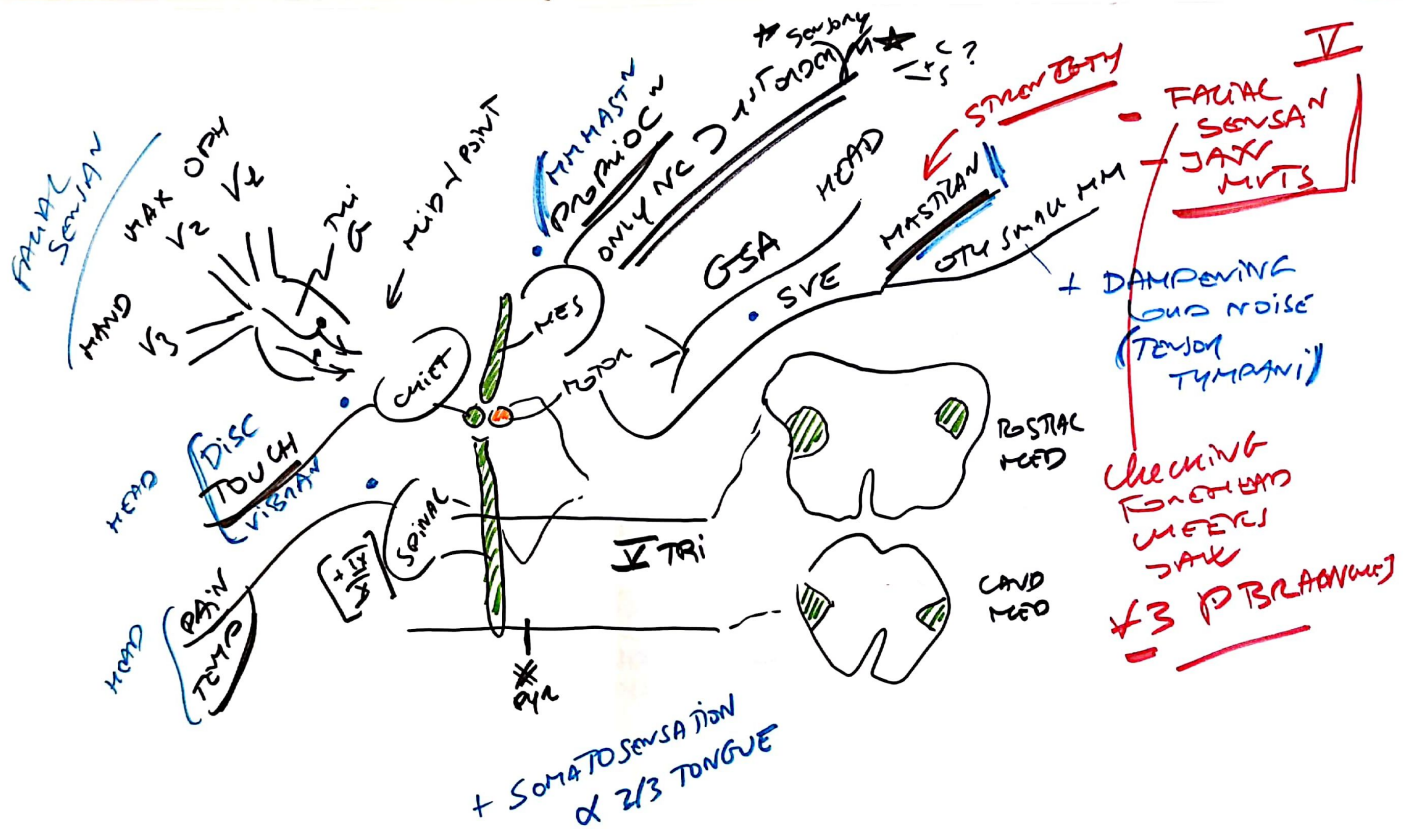 FACIAL
SENSAN
MAX
V2
OPH
MAND
V3
TRI
G
MID PONT
(MM MASTN
PROPRIOC N
ONLY NC
★ Sensory
★
C
S ?
HEAD
GSA
SVE
STRENGTH
MASTICAN
OTH SMALL MM
V
- FACIAL
SENSAN
- JAW
MVTS
+ DAMPENING
LOUD NOISE
(TENSOR
TYMPANI)
MES
MOTOR
CHIEF
HEAD
DISC
TOUCH
VIBRAN
SPINAL
[+ IX
X]
V TRI
HEAD
PAIN
TEMP
PYR
ROSTRAL
MED
CAUD
MED
CHECKING
FOREHEAD
CHEEKS
JAW
+ SOMATOSENSATION
α 2/3 TONGUE